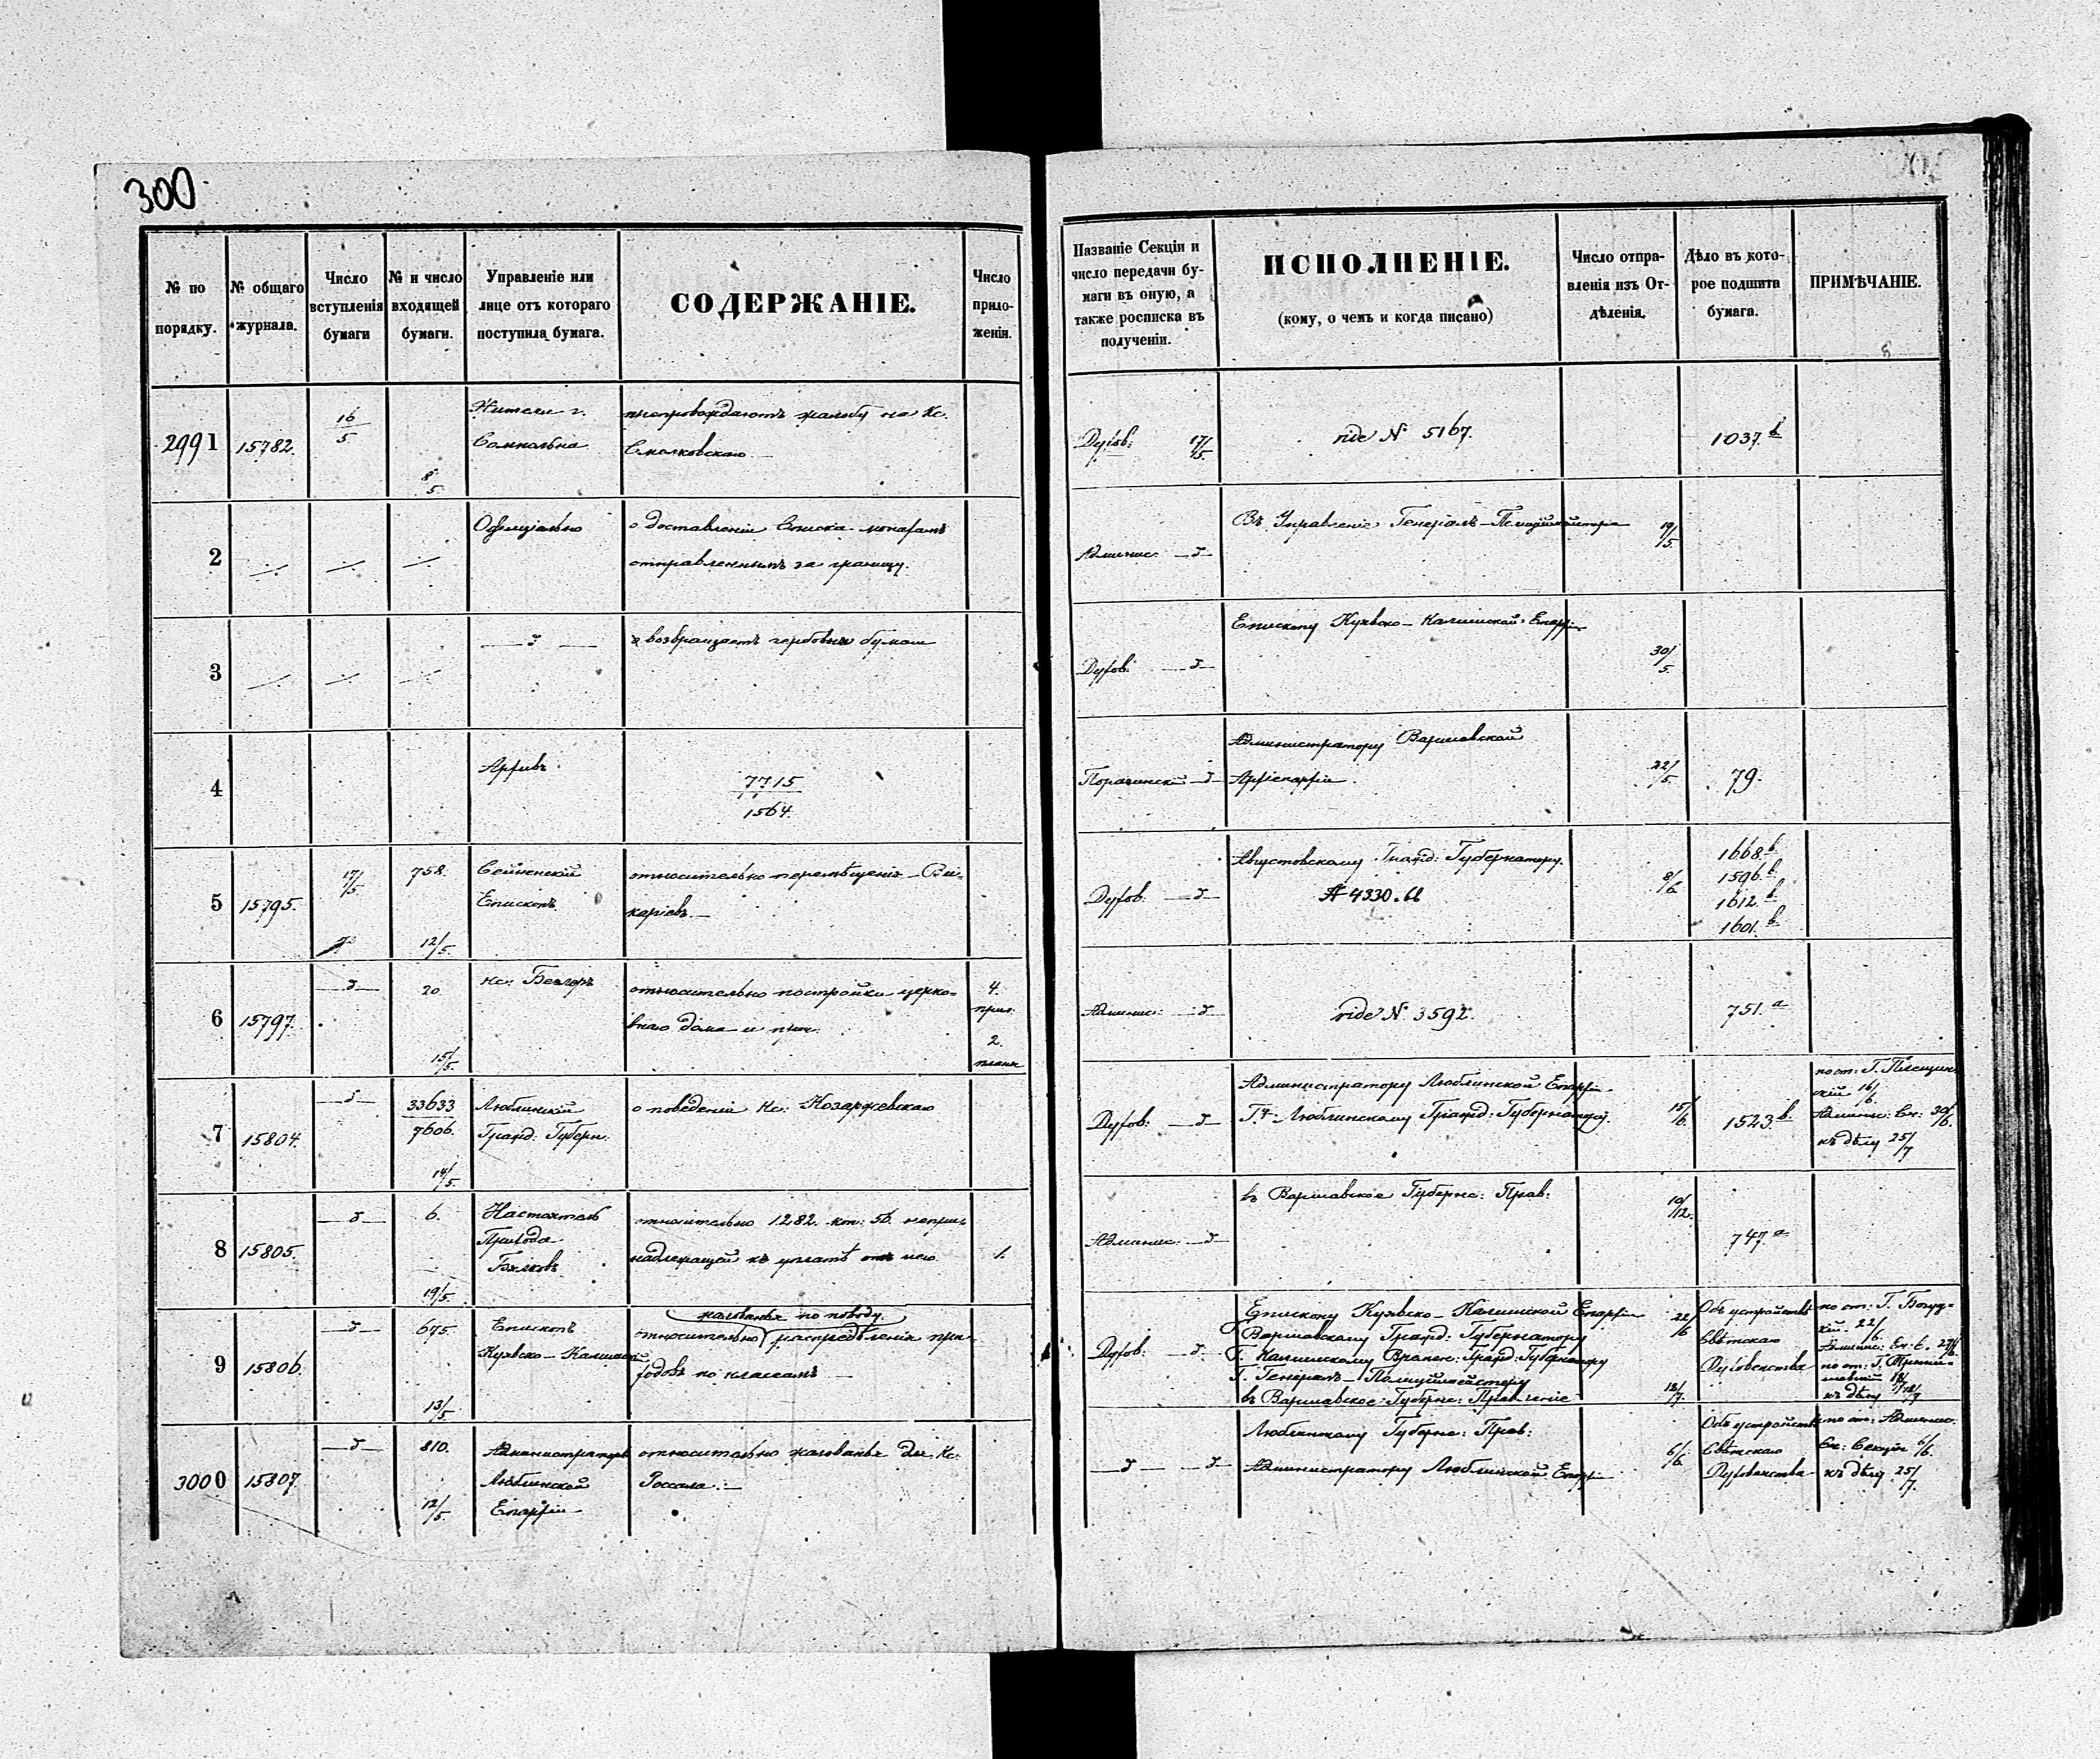 300
№ по порядку.
№ общаго журнала.
Число вступленія бумаги
№ и число входящей бумаги.
Управленіе или лице отъ котораго поступила бумага.
СОДЕРЖАНІЕ.
Число прило- женія.
Названіе Секціи и число передачи бу- маги въ оную, а также росписка въ полученіи.
ИСПОЛНЕНІЕ.
(кому, о чемъ и когда писано)
Число отпра- вленія изъ От- дѣленія.
Дѣло въ кото- рое подшита бумага.
ПРИМѢЧАНІЕ.
2991
15782.
16/5
8/5
Жители г.
Сомпольна
препровождаютъ жалобу на Кс.
Смолковскаго
Духов: 17/5
vide № 5167.
1037.b
2
Оффиціально
о доставленіи Списка монахамъ
отправленнымъ за границу.
Админис:
Въ Управленіе Генералъ-Полицiймейстера
19/5
3
возвращаетъ гербовыя бумаги
Духов.
Епископу Куявско-Калишской Епархіи
30/5
4
Архивъ
7715
1564.
Администратору Варшавской
Архіепархіи.
22/5
79.
5
15795.
17/5
758.
12/5
Сейненскій
Епископъ
относительно перемѣщенія Ви-
каріевъ.
Духов.
Августовскому Гражд: Губернатору.
№ 4330.66
8/6
1668.b
1596.b
1612.b
1601.b
6
15797.
20.
15/5
кс:
относительно постройки церко-
внаго дома и проч.
4.
прил.
2.
плана
Админис:
vide № 3592.
751.a
7
15804.
33633
7606.
14/5
Люблинскій
Гражд: Губерн:
о поведеніи Кс: Козаржевскаго
Духов:
Администратору Люблинской Епархіи
Г. Люблинскому Гражд: Губернатору.
15/6
1523.b
по от: Г. 16/6
Админис: Ск: 30/6
къ дѣлу 25/7
8
15805.
6.
19/5
Настоятель
Прихода
относительно 1282. коп: 56. непри-
надлежащей къ уплатѣ отъ него.
1.
Админис:
въ Варшавское Губернс: Прав:
10/12
747.a
9
15806.
675.
13/5
Епископъ
Куявско-Калишскій
жалованья по поводу
относительно распредѣленія при-
ходовъ по классамъ
Духов:
Епископу Куявско-Калишской Епархіи
Варшавскому Гражд: Губернатору
Г. Калишскому Времен: Гражд: Губернатору
Г. Генералъ-Полицiймейстеру
въ Варшавское Губернс: Правленіе
22/6
18/7
Объ устройствѣ
Свѣтскаго
Духовенства
по от: Г.
22/6
по от: Г.
къ дѣлу
3000
15807.
810.
12/5
Администраторъ
Люблинской
Епархіи
относительно жалованья для Кс.
Россала.
Люблинскому Губернс: Прав:
Администратору Люблинской Епархіи
6/6
Объ устройствѣ
Свѣтскаго
Духовенства
по от: Админис.
Ск: Секціи 6/6.
къ дѣлу 25/7.